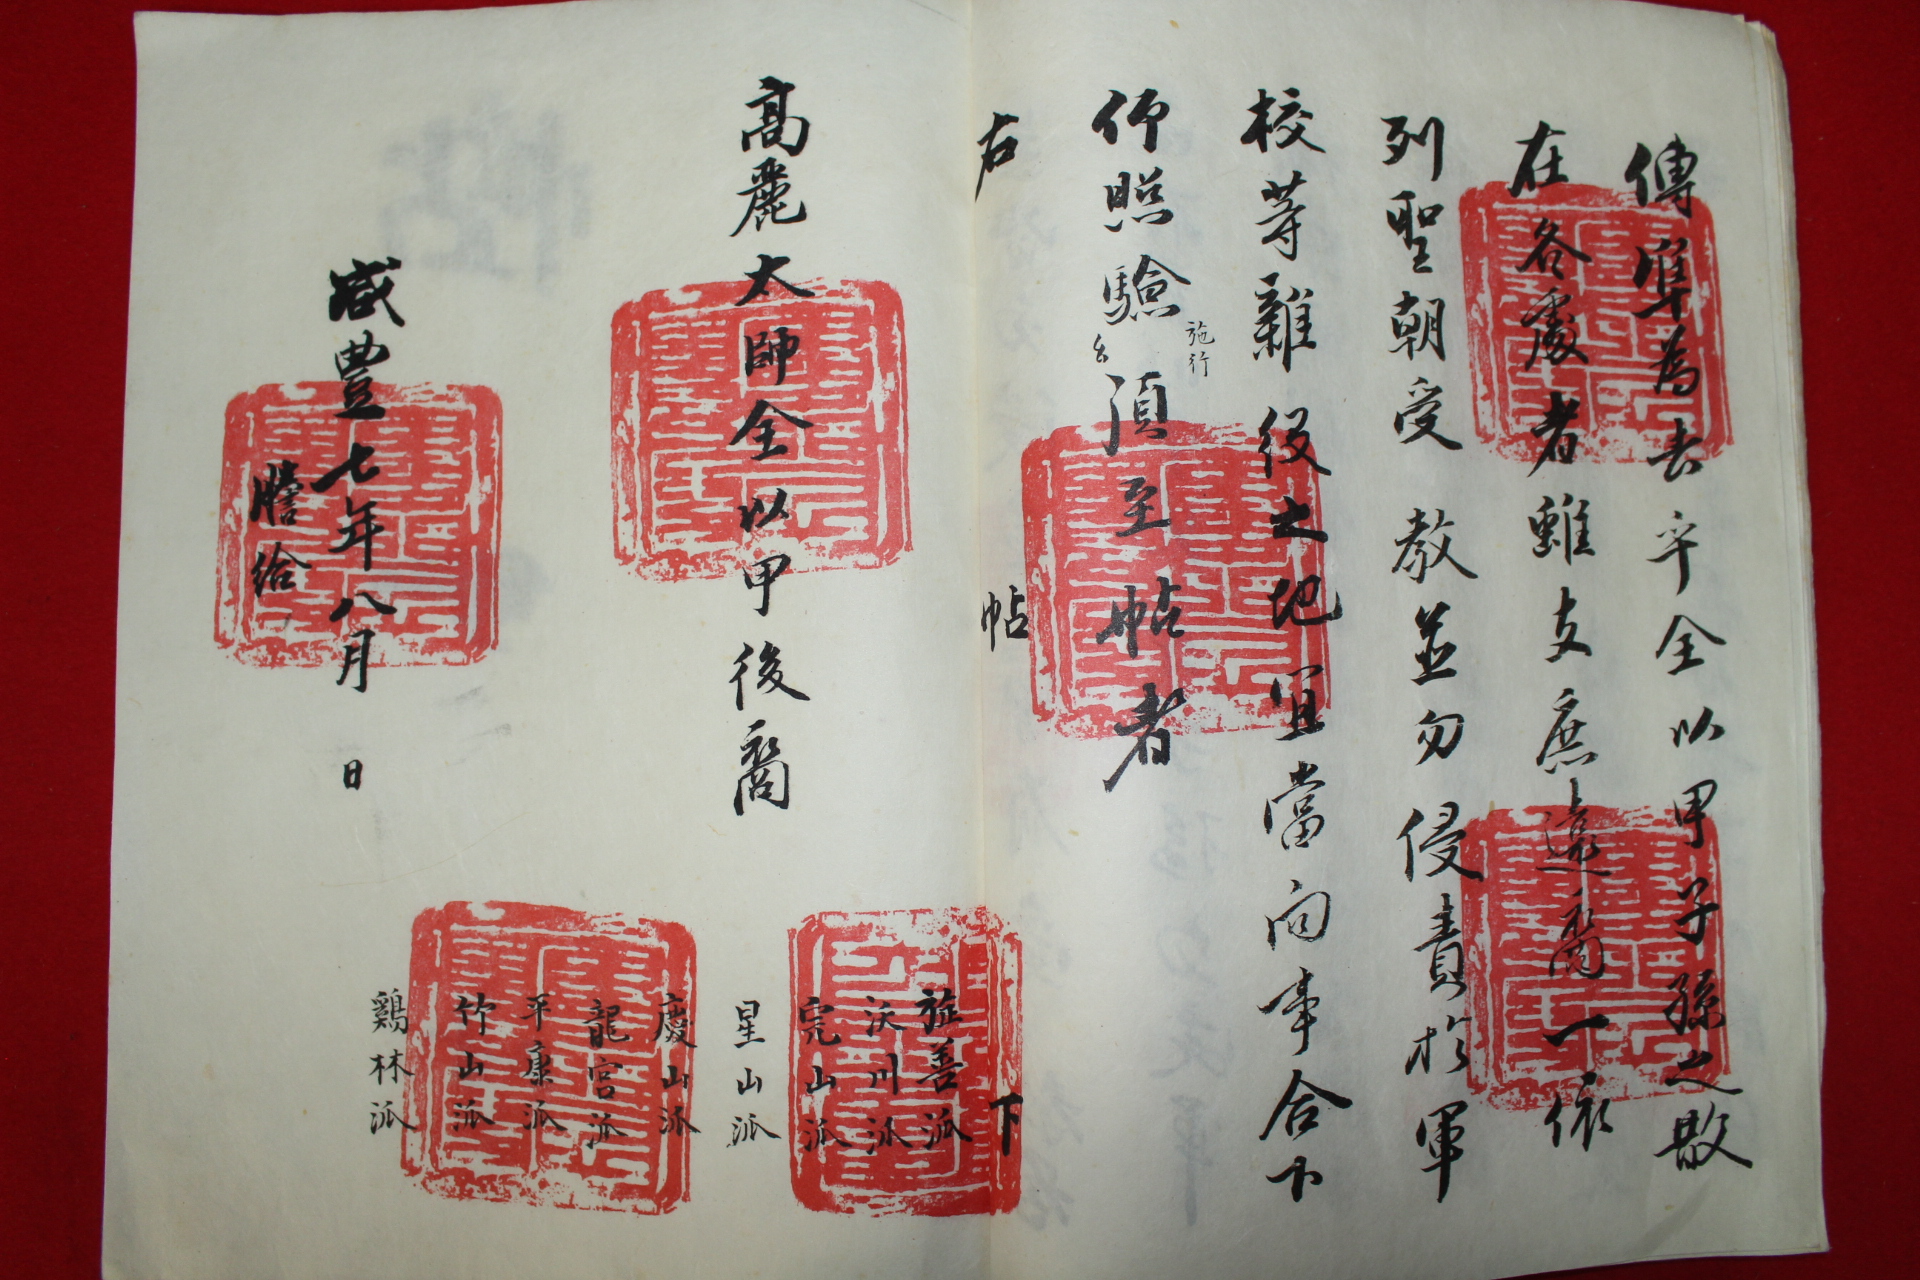 傳準爲去乎全以甲子孫之散
在各處者雖支庶遠裔一依
列聖朝受教並勿侵責於軍
校等雜役之地宜當向事合下
仰照驗施行須至帖者
右帖下
旌善派
沃川派
完山派
星山派
慶山派
龍宮派
平康派
竹山派
鷄林派
高麗太師全以甲後裔
咸豊七年八月日
謄給